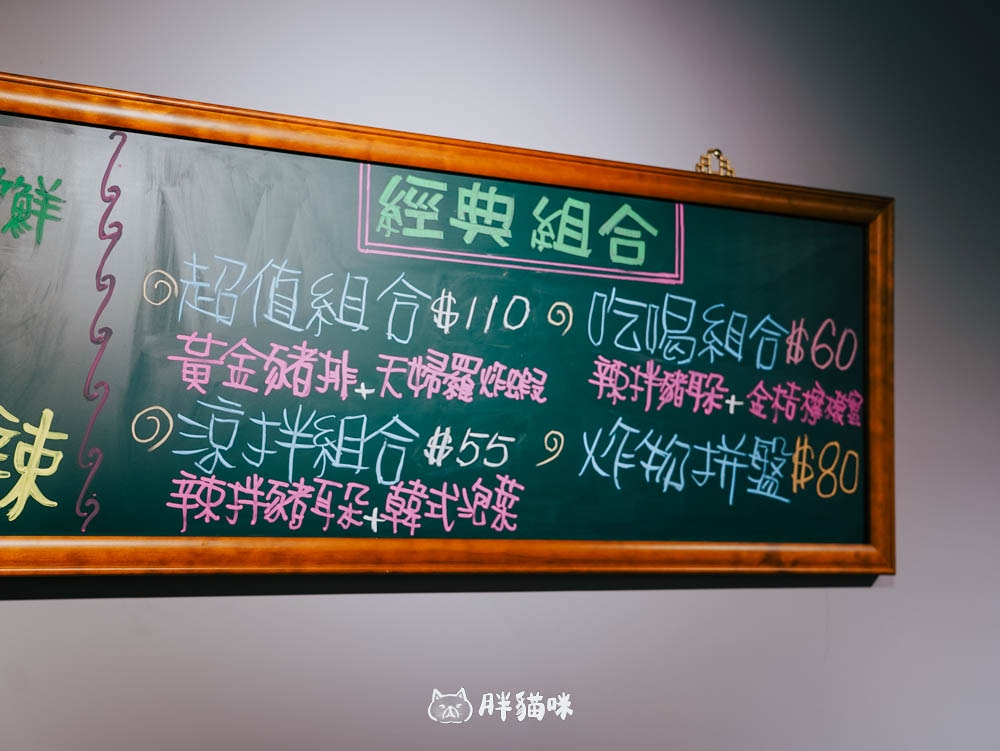 鮮
辣
經典組合
超值組合$110
黃金豬排+天婦羅炸蝦
吃喝組合$60
辣拌豬耳朵+金桔檸檬蜜
涼拌組合$55
辣拌豬耳朵+韓式泡菜
炸物拼盤$80
胖貓咪